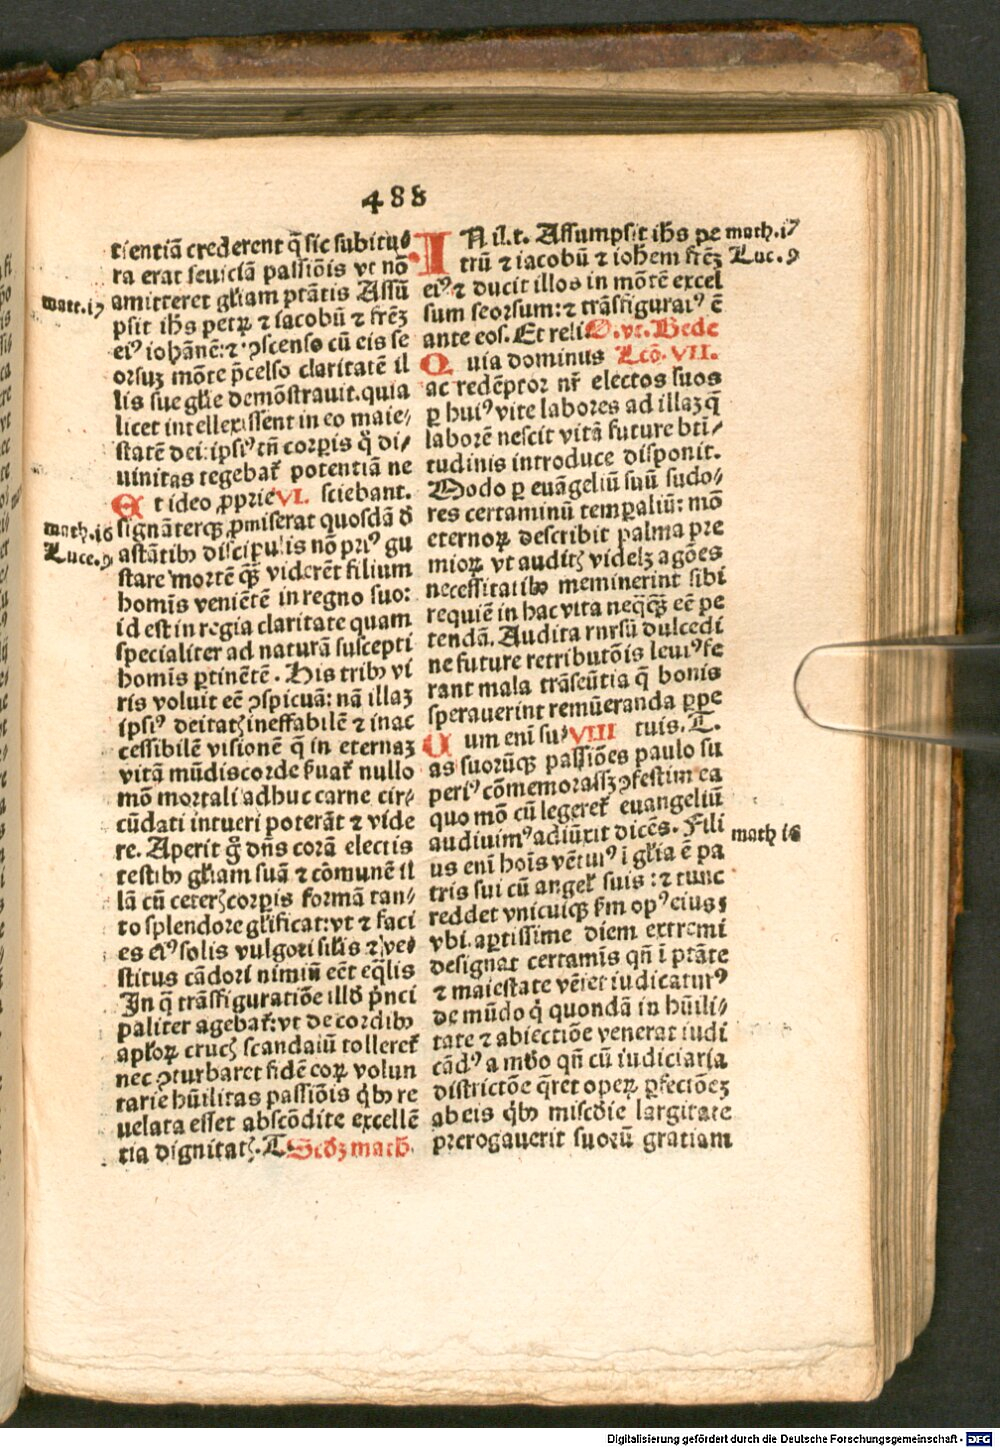 488
tientiā crederent q̄ sic subitu⸗
ra erat seuiciā passiōis vt nō
matt.17
amitteret głiam ptātis Assū
psit ihs petꝝ ⁊ iacobū ⁊ frēꝫ
eiꝰ iohānē:⁊ ꝯscenso cū eis se
orsuꝫ mōte p̄celso claritatē il
lis sue głie demōstrauit.quia
licet intellexissent in eo maie⸗
statē dei:ipsiꝰ tn̄ corꝑis q̄ di⸗
uinitas tegebať potentiā ne
sciebant.
VI.
Et ideo ꝓprie
math.16
Luce.9
signāterqꝫ ꝓmiserat quosdā đ
astātibꝰ discipulis nō priꝰ gu
stare mortē qꝫ̄ viderēt filium
homīs veniētē in regno suo:
id est in regia claritate quam
specialiter ad naturā suscepti
homīs ꝑtinētē. His tribꝰ vi
ris voluit eē ꝯspicuā: nā illaꝫ
ipsiꝰ deitatꝭ ineffabilē ⁊ inac
cessibilē visionē q̄ in eternaꝫ
vitā mūdis corde ẜuať nullo
mō mortali adhuc carne cir⸗
cūdati intueri poterāt ⁊ vide
re. Aperit g̊ dn̄s corā electis
testibꝰ głiam suā ⁊ cōmunē il
lā cū ceterꝭ corꝑis formā tan⸗
to splendore głificat:vt ⁊ faci
es eiꝰ solis vulgori siłis ⁊ ve⸗
stitus cādori nimiū eēt eq̄lis
In q̄ trāsfiguratiōe illđ p̄nci
paliter agebať:vt de cordibꝰ
apłoꝝ crucꝭ scandalū tollereť
nec ꝯturbaret fidē eoꝝ volun
tarie hūilitas passiōis q̄bꝰ re
uelata esset abscōdite excellē
tia dignitatꝭ.T Scđꝫ math.
IN il.t. Assumpsit ihs pe
math.17
trū ⁊ iacobū ⁊ iohēm frēꝫ
Luc.9
eiꝰ ⁊ ducit illos in mōtē excel
sum seorsum:⁊ trāsfiguratꝰ ē
ante eos. Et reli. O.ve. Bede
Quia dominus Lcō.VII.
ac redēptor nr̄ electos suos
ꝑ huiꝰ vite labores ad illaꝫ q̄
laborē nescit vitā future bti⸗
tudinis introduce disponit.
Modo ꝑ euāgeliū suū sudo⸗
res certaminū temꝑaliū: mō
eternoꝝ describit palma pre
mioꝝ vt auditꝭ videlꝫ agōes
necessitatibꝰ meminerint sibi
requiē in hac vita neqꝫqꝫ̄ eē pe
tendā. Audita rursū dulcedi
ne future retributōis leuiꝰ fe
rant mala trāseūtia q̄ bonis
sperauerint remūeranda ꝑpe
tuis. T.
VIII
Cum enī su⸗
as suorūqꝫ passiōes paulo su
periꝰ cōmemorassꝫ ꝯfestim ea
quo mō cū legereť euangeliū
audiuimꝰ adiūxit dicēs. Fili
math 16
us enī hoīs vētuꝰ ī głia ē pa
tris sui cū angeł suis :⁊ tunc
reddet vnicuiqꝫ ẜm opꝰ eius:
vbi aꝑtissime diem extremi
designat certamīs qn̄ ī ptāte
⁊ maiestate vēiet iudicaturꝰ
de mūdo q̇ quondā in hūili⸗
tate ⁊ abiectiōe venerat iudi
cādꝰ a mūdo qn̄ cū iudiciaria
districtōe q̄ret opeꝝ ꝑfectiōeꝫ
ab eis q̄bꝰ misčdie largitate
prerogauerit suorū gratiam
Digitalisierung gefördert durch die Deutsche Forschungsgemeinschaft - DFG